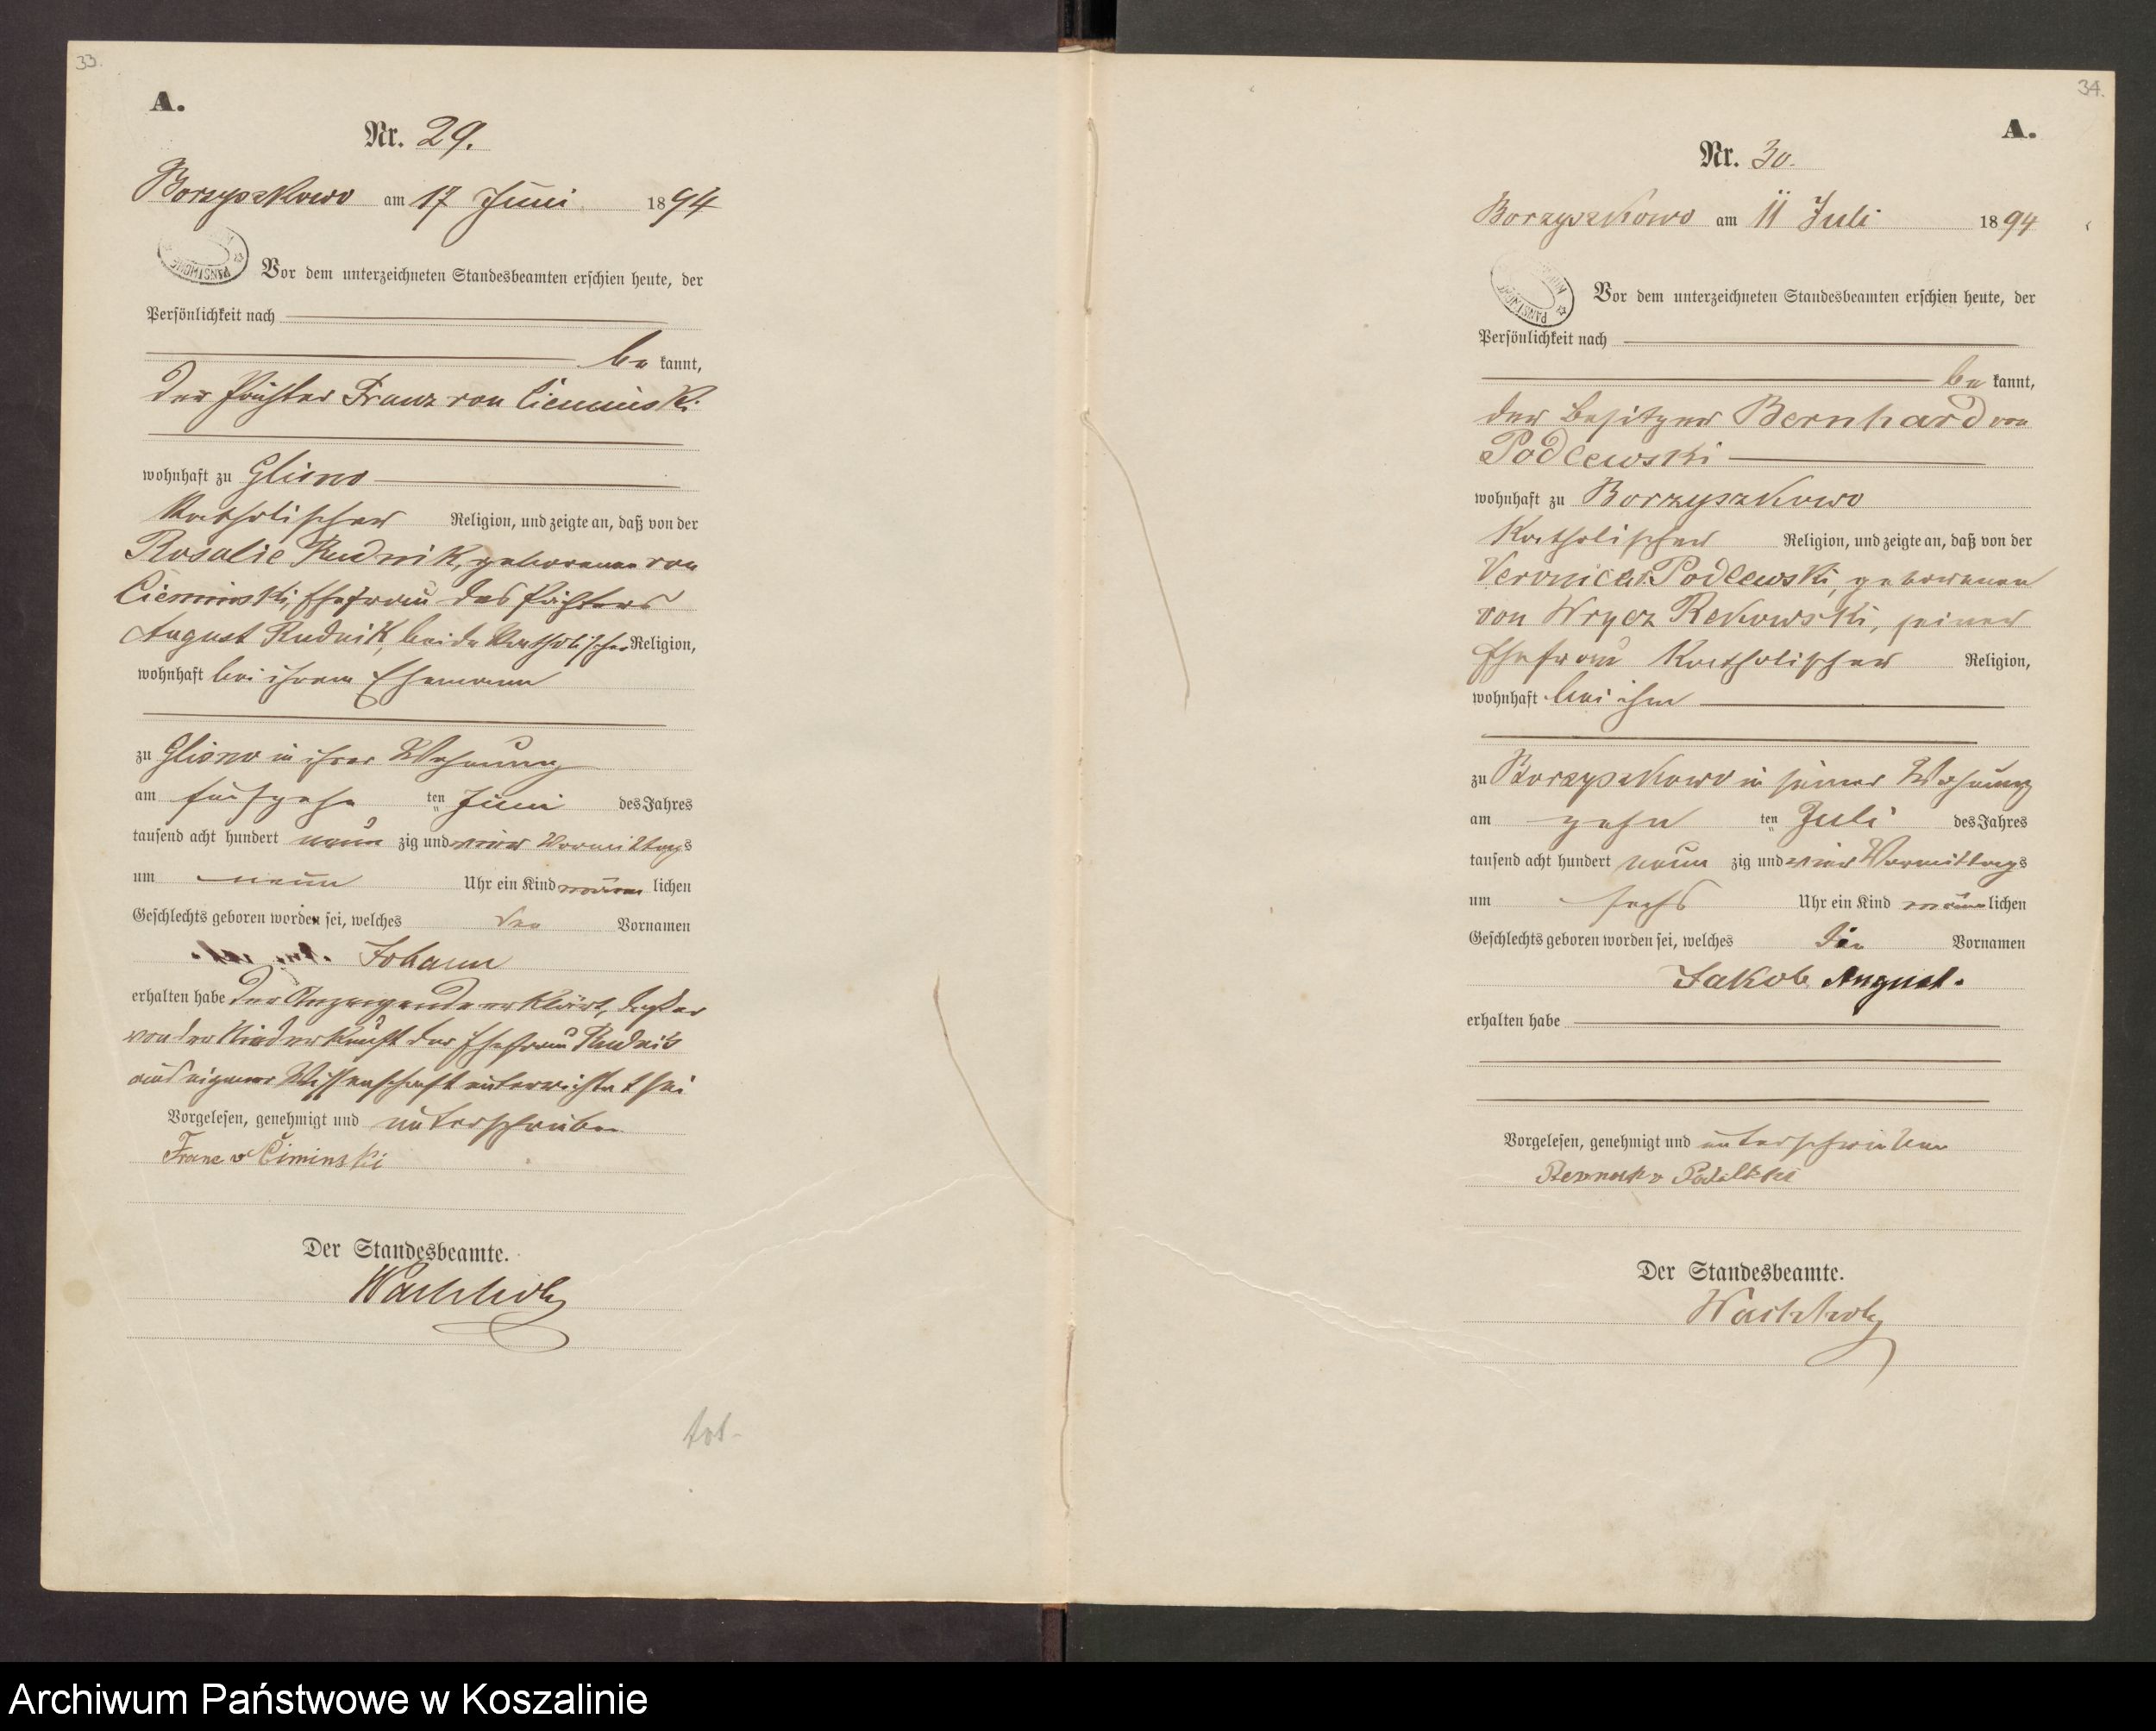 33.
A.
Nr. 29.
Borzyszkowo am 17 Juni 1894
Vor dem unterzeichneten Standesbeamten erschien heute, der
Persönlichkeit nach
be kannt,
der Pächter Franz von Cieminski
wohnhaft zu Glisno
katholischer Religion, und zeigte an, daß von der
Rosalie Rudnik, geborenen von
Cieminski, Ehefrau des Pächters
August Rudnik, beide katholischer Religion,
wohnhaft bei ihrem Ehemann
zu Glisno in ihrer Wohnung
am ten Juni des Jahres
tausend acht hundert neun zig und vier Vormittags
um neun Uhr ein Kind männ lichen
Geschlechts geboren worden sei, welches den Vornamen
Johann
erhalten habe der Anzeigende erklärt, daß er
von der Niederkunft der Ehefrau Rudnik
aus eigener Wissenschaft unterrichtet sei
Vorgelesen, genehmigt und unterschrieben
Franc v Ciminski
Der Standesbeamte.
Wachholz
tot.
34.
A.
Nr. 30.
Borzyszkowo am 11 Juli 1894
Vor dem unterzeichneten Standesbeamten erschien heute, der
Persönlichkeit nach
be kannt,
der Besitzer Bernhard von
Podlewski
wohnhaft zu Borzyszkowo
katholischer Religion, und zeigte an, daß von der
Veronica v. Podlewski, geborenen
von Wrycz Rekowski, seiner
Ehefrau katholischer Religion,
wohnhaft bei ihm
zu Borzyszkowo in seiner Wohnung
am zehn ten Juli des Jahres
tausend acht hundert neun zig und vier Vormittags
um sechs Uhr ein Kind männ lichen
Geschlechts geboren worden sei, welches die Vornamen
Jakob August.
erhalten habe
Vorgelesen, genehmigt und unterschrieben
Der Standesbeamte.
Wachholz
Archiwum Państwowe w Koszalinie